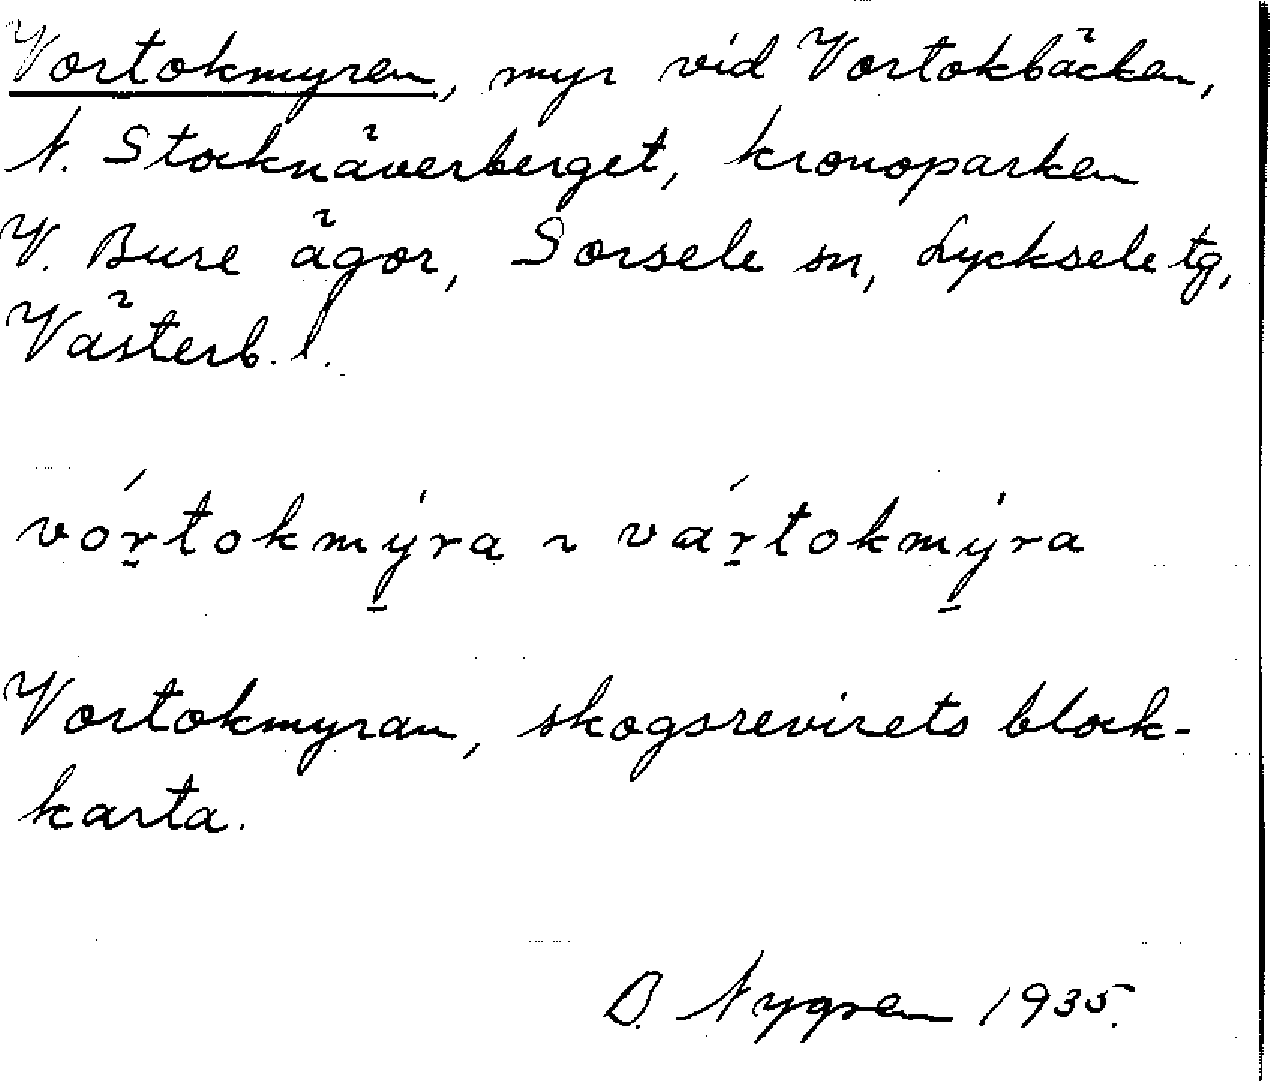 Vortokmyren, myr vid Vortokbäcken,
N. Stocknäverberget, kronoparken
V. Bure ägor, Sorsele sn, Lycksele tg,
Västerb. l.
vórtokmýra ~ vártokmýra
Vortokmyran, skogsrevirets block-
karta.
B. Nygren 1935.